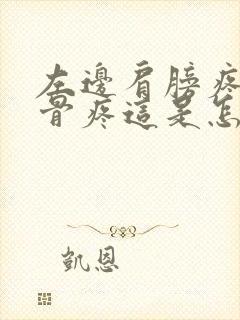 左邊肩膀疼
骨疼這是怎
凱恩